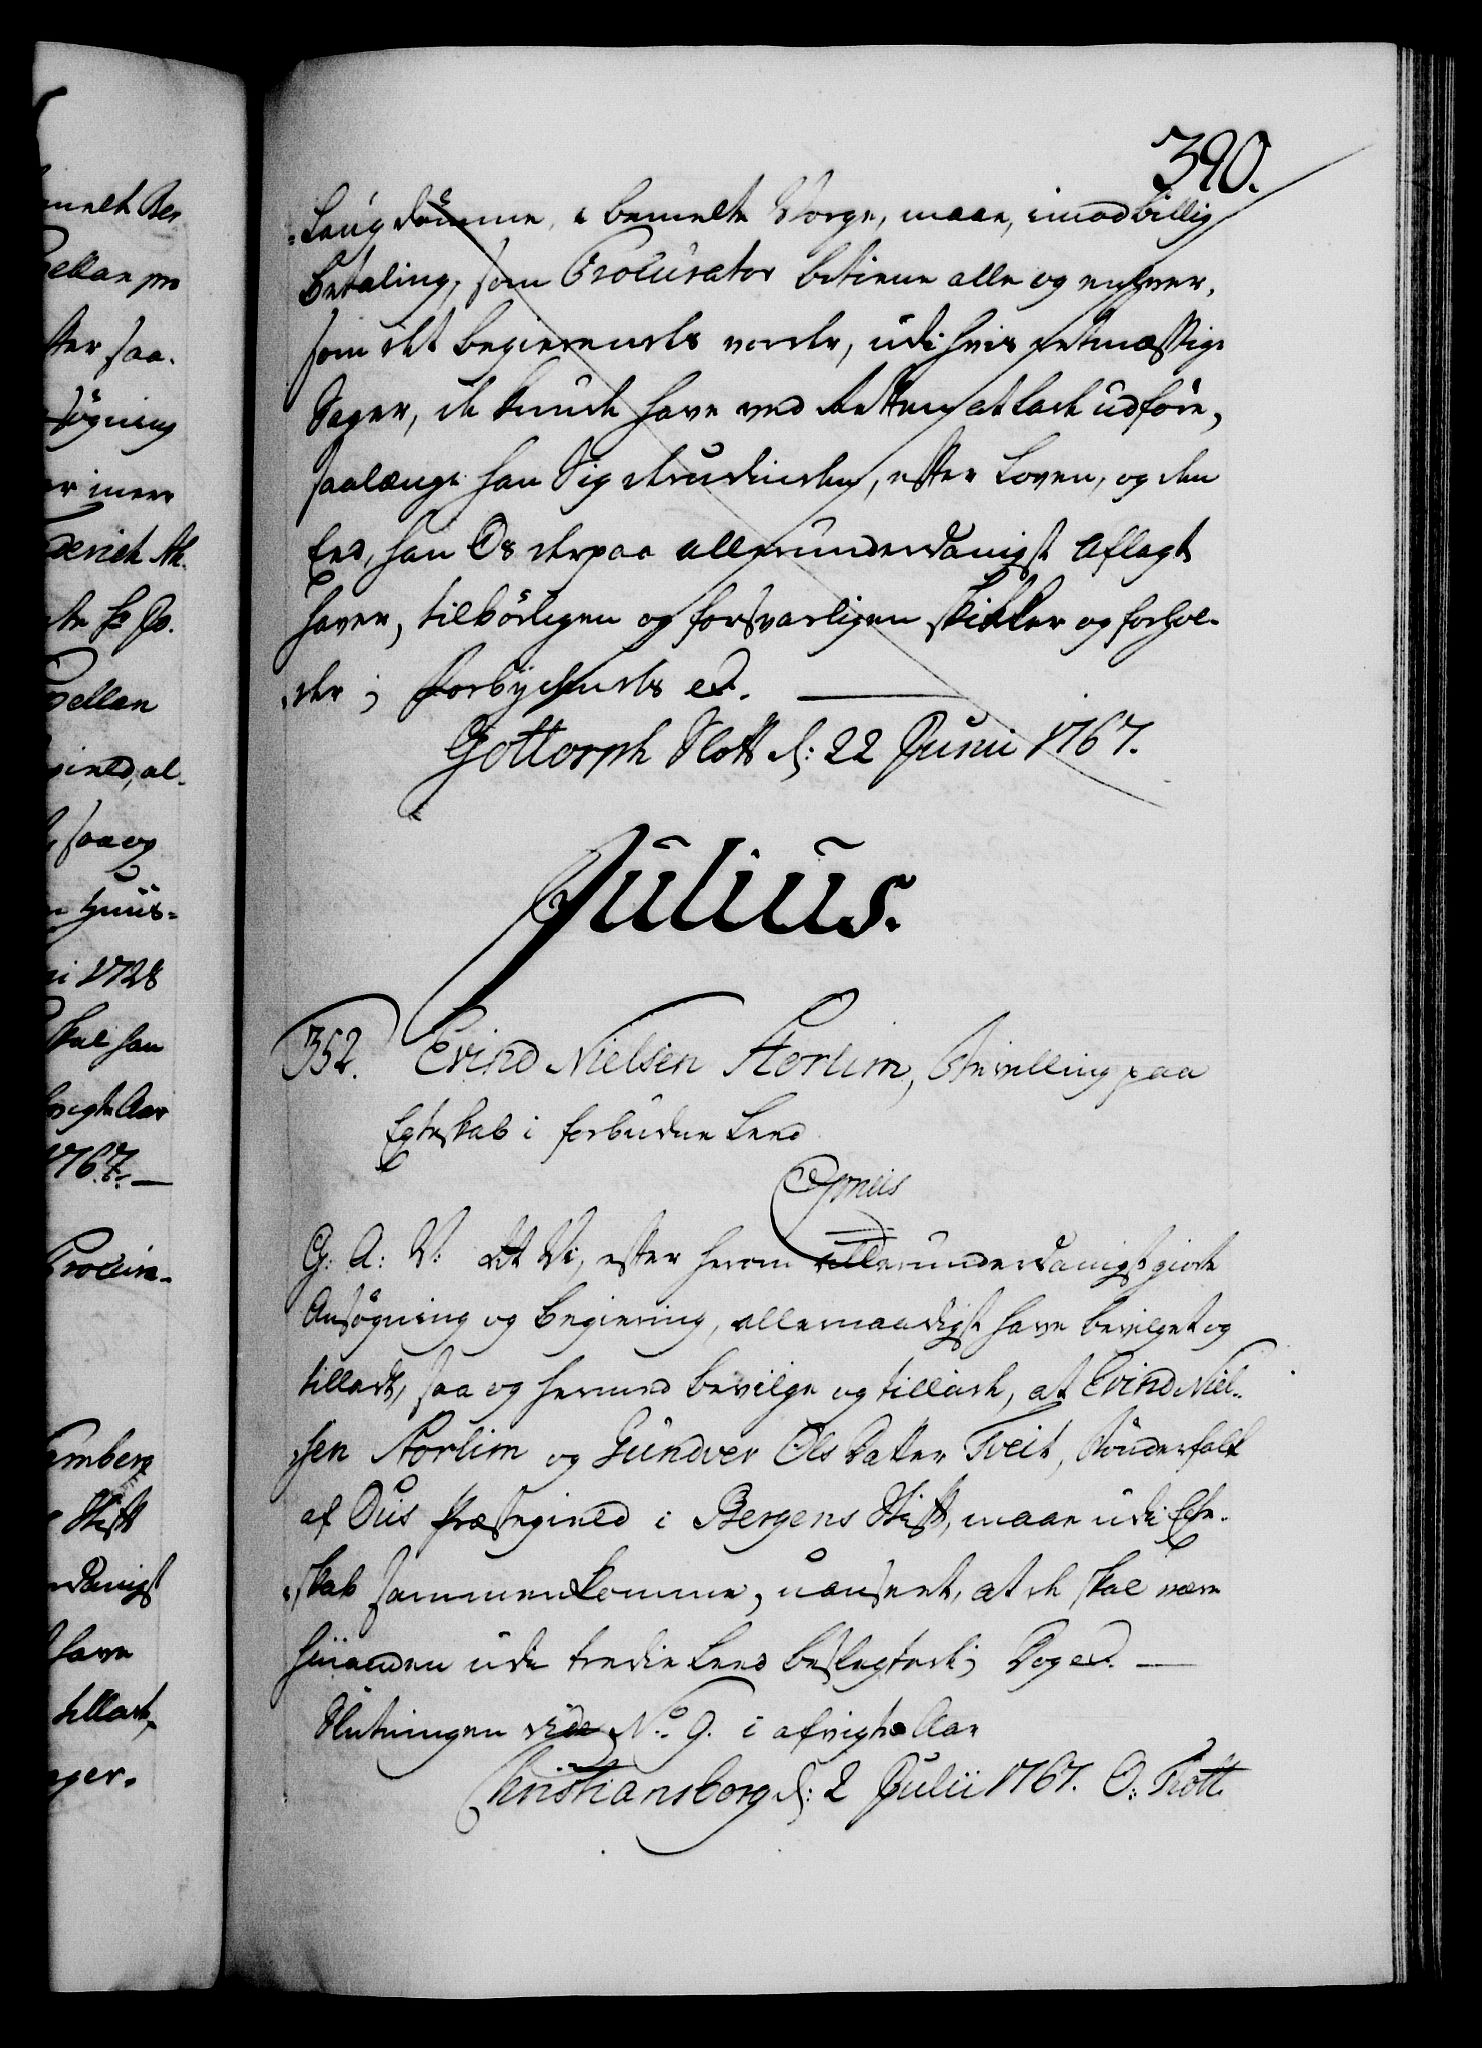 390.
Laugdømme, i bemelte Norge, maae, imod billig
Betaling, som Procurator betiene alle og enhver,
som det begierendes vorde, udi hvis retmæssige
Sager, de kunde have ved Retten at lade udføre,
saalænge han Sig derudinden, efter Loven, og den
Eed, han Os derpaa allerunderdanigst aflagt
haver, tilbørligen og forsvarligen skikker og forhol-
der; Forbydendes etc.
Gottorph Slott d: 22 Junii 1767.
Julius.
352. Evind Nielsen Aorlim, Bevilling paa
Egteskab i forbudne Leed
Gratis
G: A: V: At Vi, efter herom allerunderdanigst giorde
Ansøgning og Begiering, allernaadigst have bevilget og
tilladt, saa og hermed bevilge og tillade, at Evind Niel-
sen Aorlim og Gundver Ols Datter Tveit, Bønderfolk
af Ous Præstegield i Bergens Stift, maae udi Egte-
skab sammenkomme, uanseet, at de skal være
hinanden udi tredie Leed beslegtede; Dog etc.
Slutningen vide No. 9. i afvigte Aar
Christiansborg d: 2 Julii 1767. O: Thott
melt Ber
pellan pro
ter saa.
søgning
er meer
derich Al.
pellan
gield, al-
saa og
Huus-
ni 1728
skal han
vigte Aar
1767.
Procura-
emberg
Stift
danigst
have
tillade,
ager.